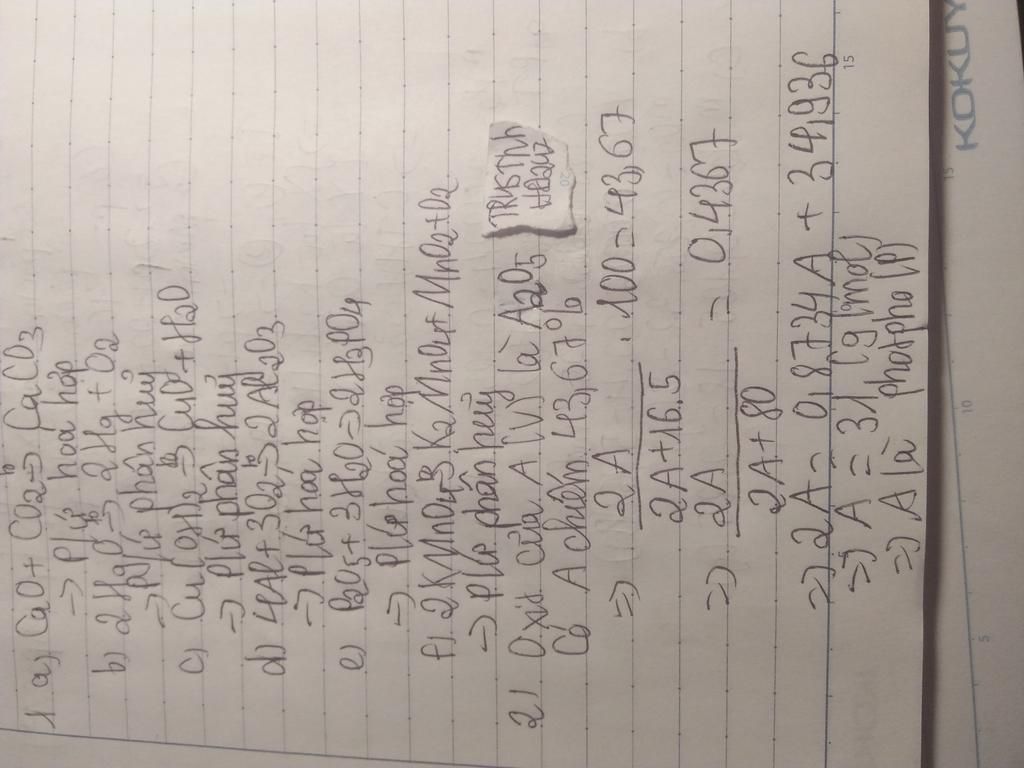 1 a) CaO + CO2 => CaCO3
=> P/ứ hoá hợp
b) 2HgO => 2Hg + O2
=> P/ứ phân huỷ
c) Cu(OH)2 => CuO + H2O
=> P/ứ phân huỷ
d) 4Al + 3O2 => 2Al2O3
=> P/ứ hoá hợp
e) P2O5 + 3H2O => 2H3PO4
=> P/ứ hoá hợp
f) 2KMnO4 => K2MnO4 + MnO2 + O2
=> P/ứ phân huỷ
2) Oxit của A (V) là A2O5
TRKSTNVN
Có A chiếm 43,67%
=> 2A / 2A+16.5 . 100 = 43,67
=> 2A / 2A + 80 = 0,4367
=> 2A = 0,8734A + 34,936
=> A = 31 (g/mol)
=> A là photpho (P)
KOKUYO
5
10
15
15